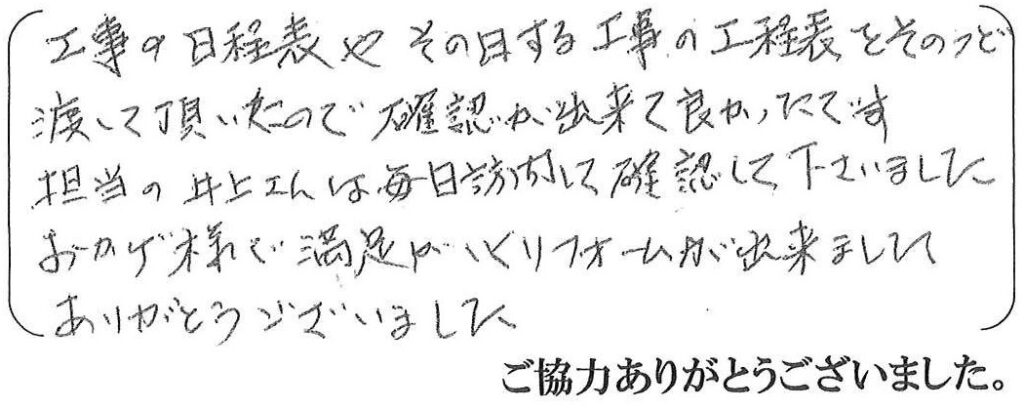 工事の日程表や その日する工事の工程表をそのつど
渡して頂いたので確認が出来て良かったです
担当の井上さんは毎日訪問して確認して下さいました
おかげ様で満足がいくリフォームが出来ました
ありがとうございました
ご協力ありがとうございました。